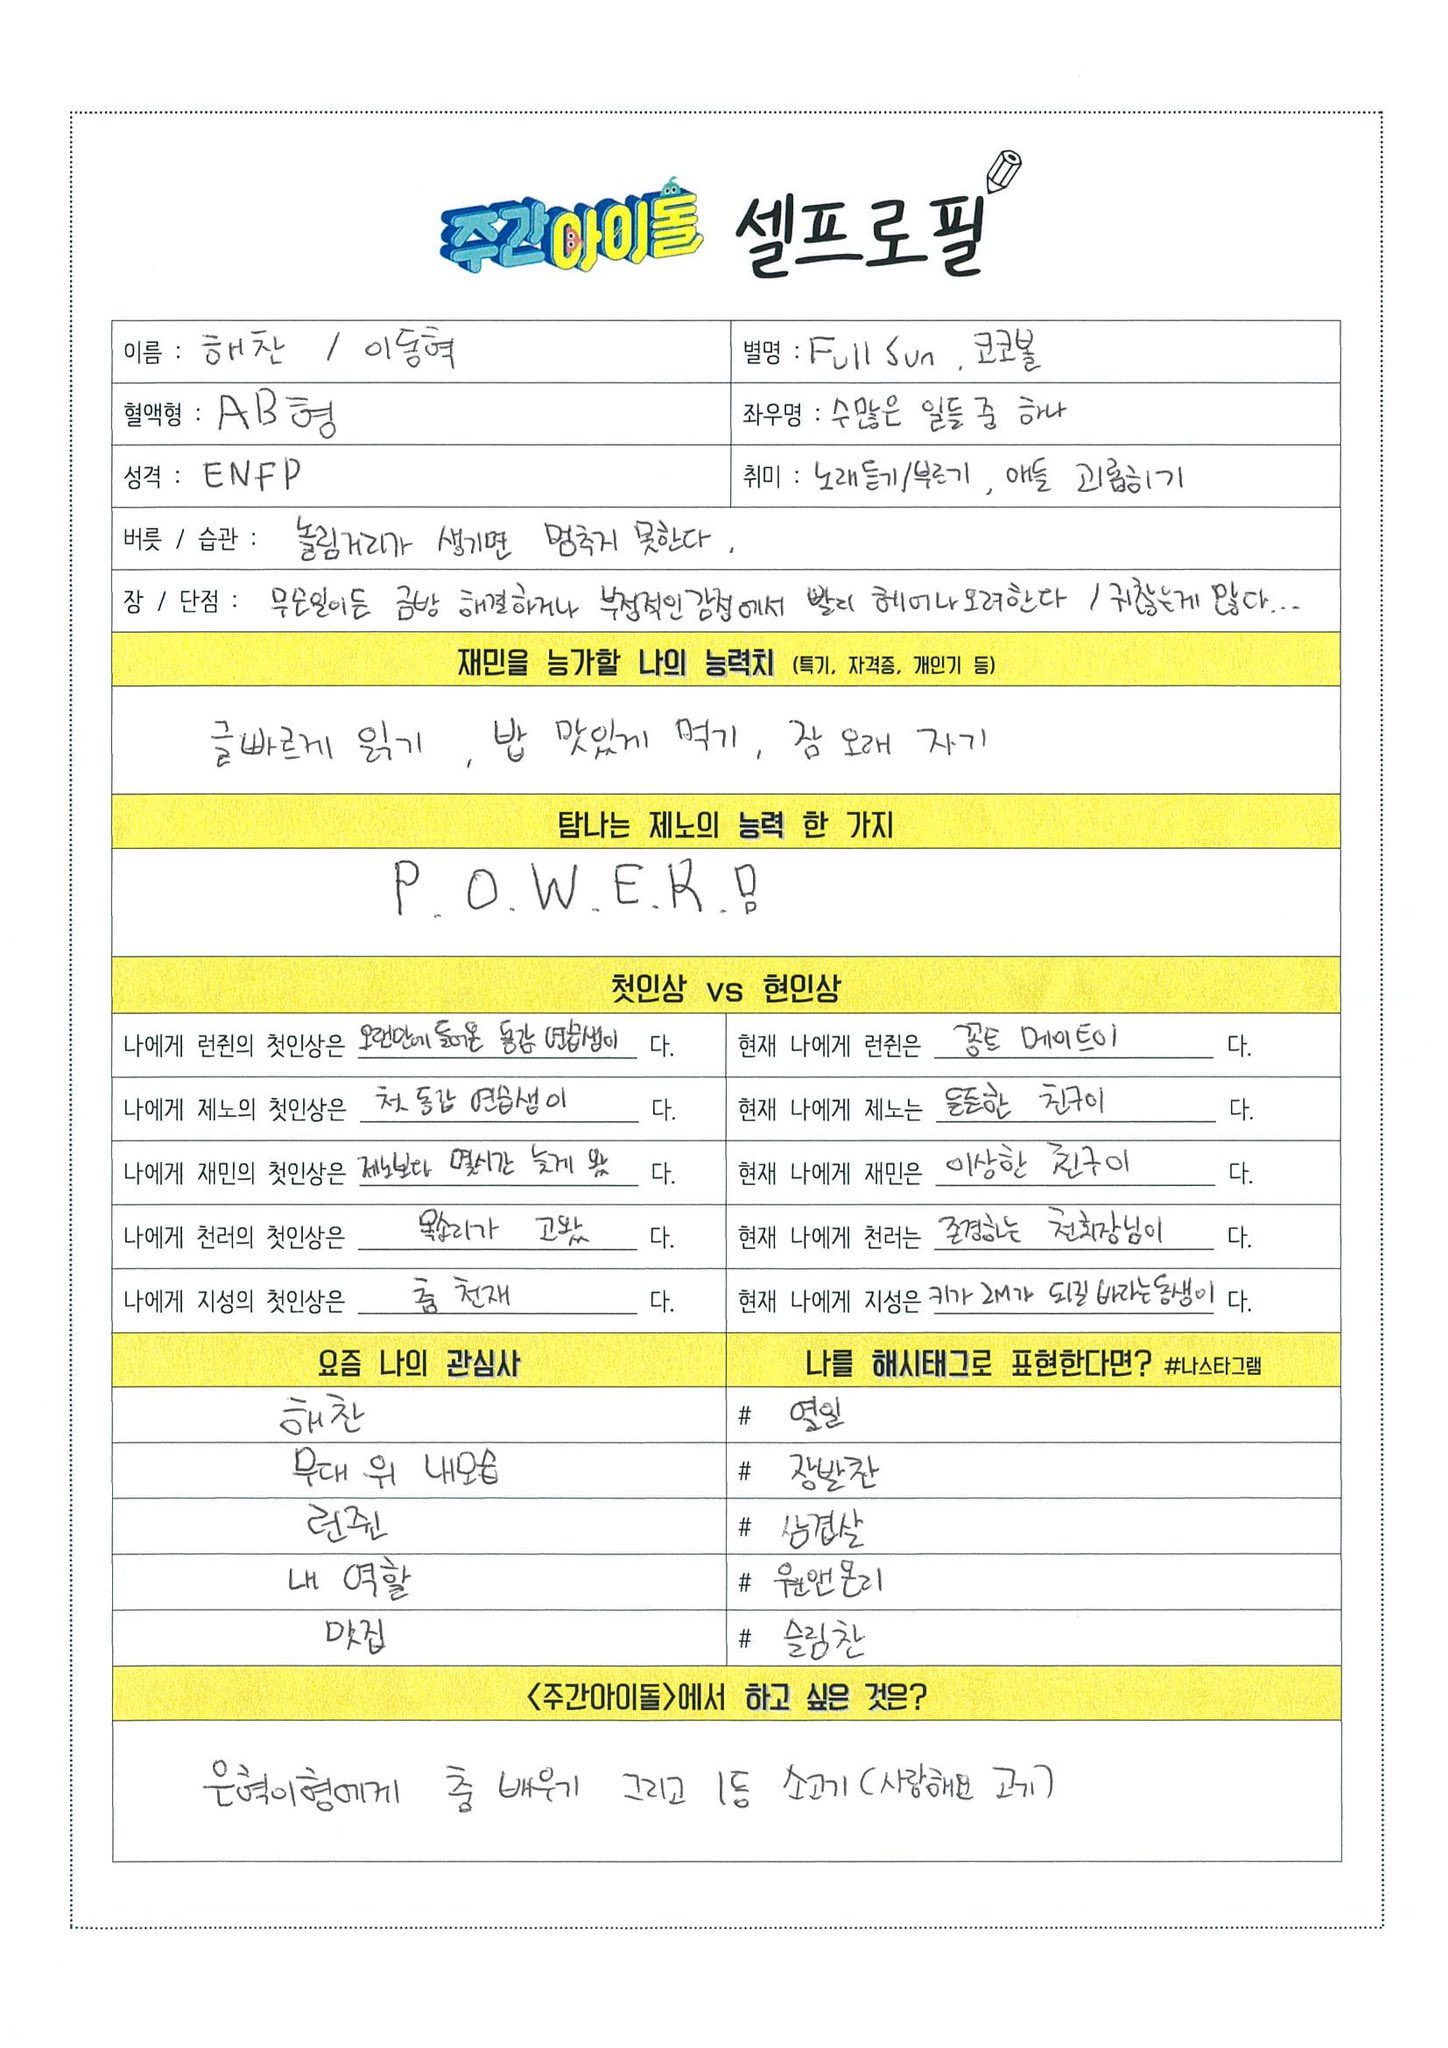 주간아이돌 셀프로필
이름 : 해찬 / 이동혁
별명 : Full Sun, 코코볼
혈액형 : AB형
좌우명 : 수많은 일들 중 하나
성격 : ENFP
취미 : 노래듣기/부르기, 애들 괴롭히기
버릇 / 습관 : 놀림거리가 생기면 멈추지 못한다.
장 / 단점 : 무슨일이든 금방 해결하거나 부정적인 감정에서 빨리 헤어나오려한다 / 귀찮는게 많다...
재민을 능가할 나의 능력치 (특기, 자격증, 개인기 등)
글빠르게 읽기, 밥 맛있게 먹기, 잠 오래 자기
탐나는 제노의 능력 한 가지
P.O.W.E.R.몸
첫인상 vs 현인상
나에게 런쥔의 첫인상은 오랜만에 들어온 동갑 연습생이 다.
현재 나에게 런쥔은 꽁트 메이트이 다.
나에게 제노의 첫인상은 첫 동갑 연습생이 다.
현재 나에게 제노는 든든한 친구이 다.
나에게 재민의 첫인상은 제노보다 몇시간 늦게 왔 다.
현재 나에게 재민은 이상한 친구이 다.
나에게 천러의 첫인상은 목소리가 고왔 다.
현재 나에게 천러는 존경하는 천회장님이 다.
나에게 지성의 첫인상은 춤 천재 다.
현재 나에게 지성은 키가 2M가 되길 바라는 동생이 다.
요즘 나의 관심사
나를 해시태그로 표현한다면? #나스타그램
해찬
# 열일
무대 위 내모습
# 장발찬
런쥔
# 삼겹살
내 역할
# 원앤온리
맛집
# 슬림찬
<주간아이돌>에서 하고 싶은 것은?
은혁이형에게 춤 배우기 그리고 1등 소고기 (사랑해요 고기)